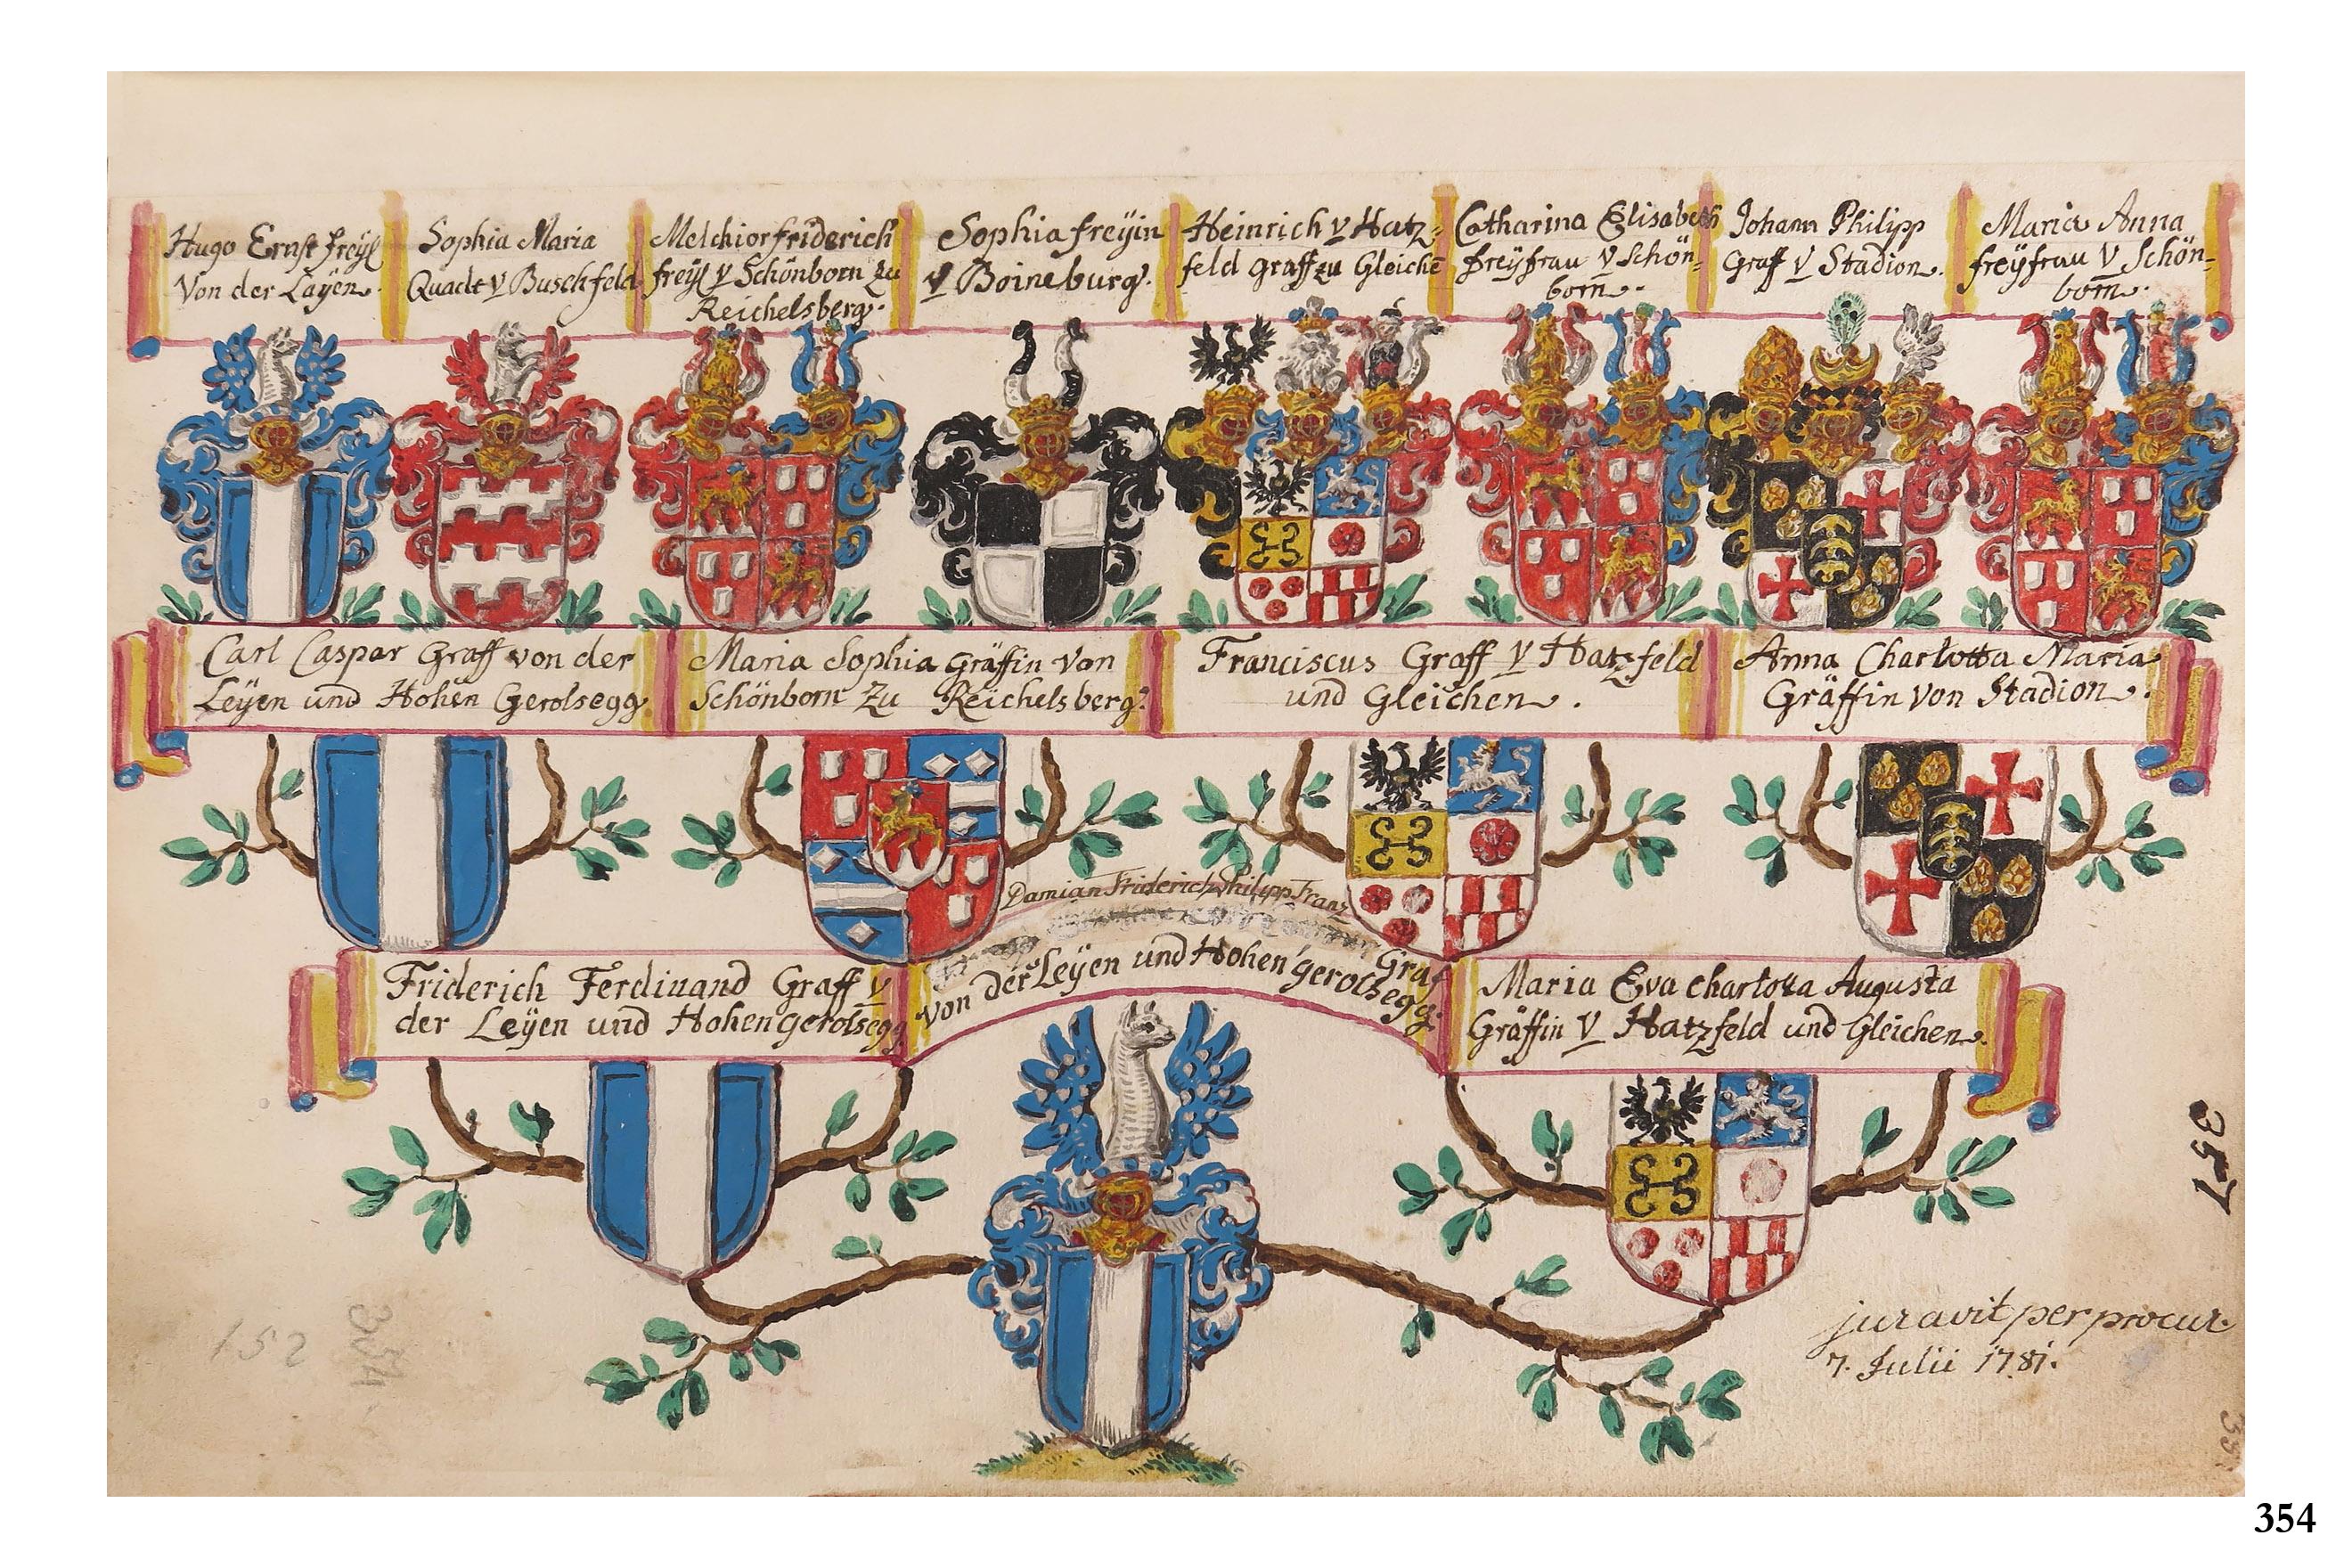 Hugo Ernst freÿl
Von der Laÿen.
Sophia Maria
Quadt v Buschfeld
Melchior friderich
freÿl v Schönborn zu
Reichelsberg.
Sophia freÿin
v Boineburg.
Heinrich v Hatz-
feld graff zu Gleichē
Catharina Elisabeth
freÿfrau v Schön-
born.
Johann Philipp
Graff v Stadion.
Maria Anna
freÿfrau v Schön-
born.
Carl Caspar Graff von der
Leÿen und Hohen Gerolsegg
Maria Sophia Gräffin von
Schönborn Zu Reichelsberg.
Franciscus Graff v Hatzfeld
und Gleichen.
Anna Charlotta Maria
Gräffin von Stadion.
Friderich Ferdinand Graff v
der Leÿen und Hohengerolsegg
Damian Friderich Philipp Franz
Graf
von der Leÿen und Hohen gerolsegg.
Maria Eva Charlotta Augusta
Gräffin v Hatzfeld und Gleichen.
357
juravit per procur.
7. Julii 1781.
152
354
354